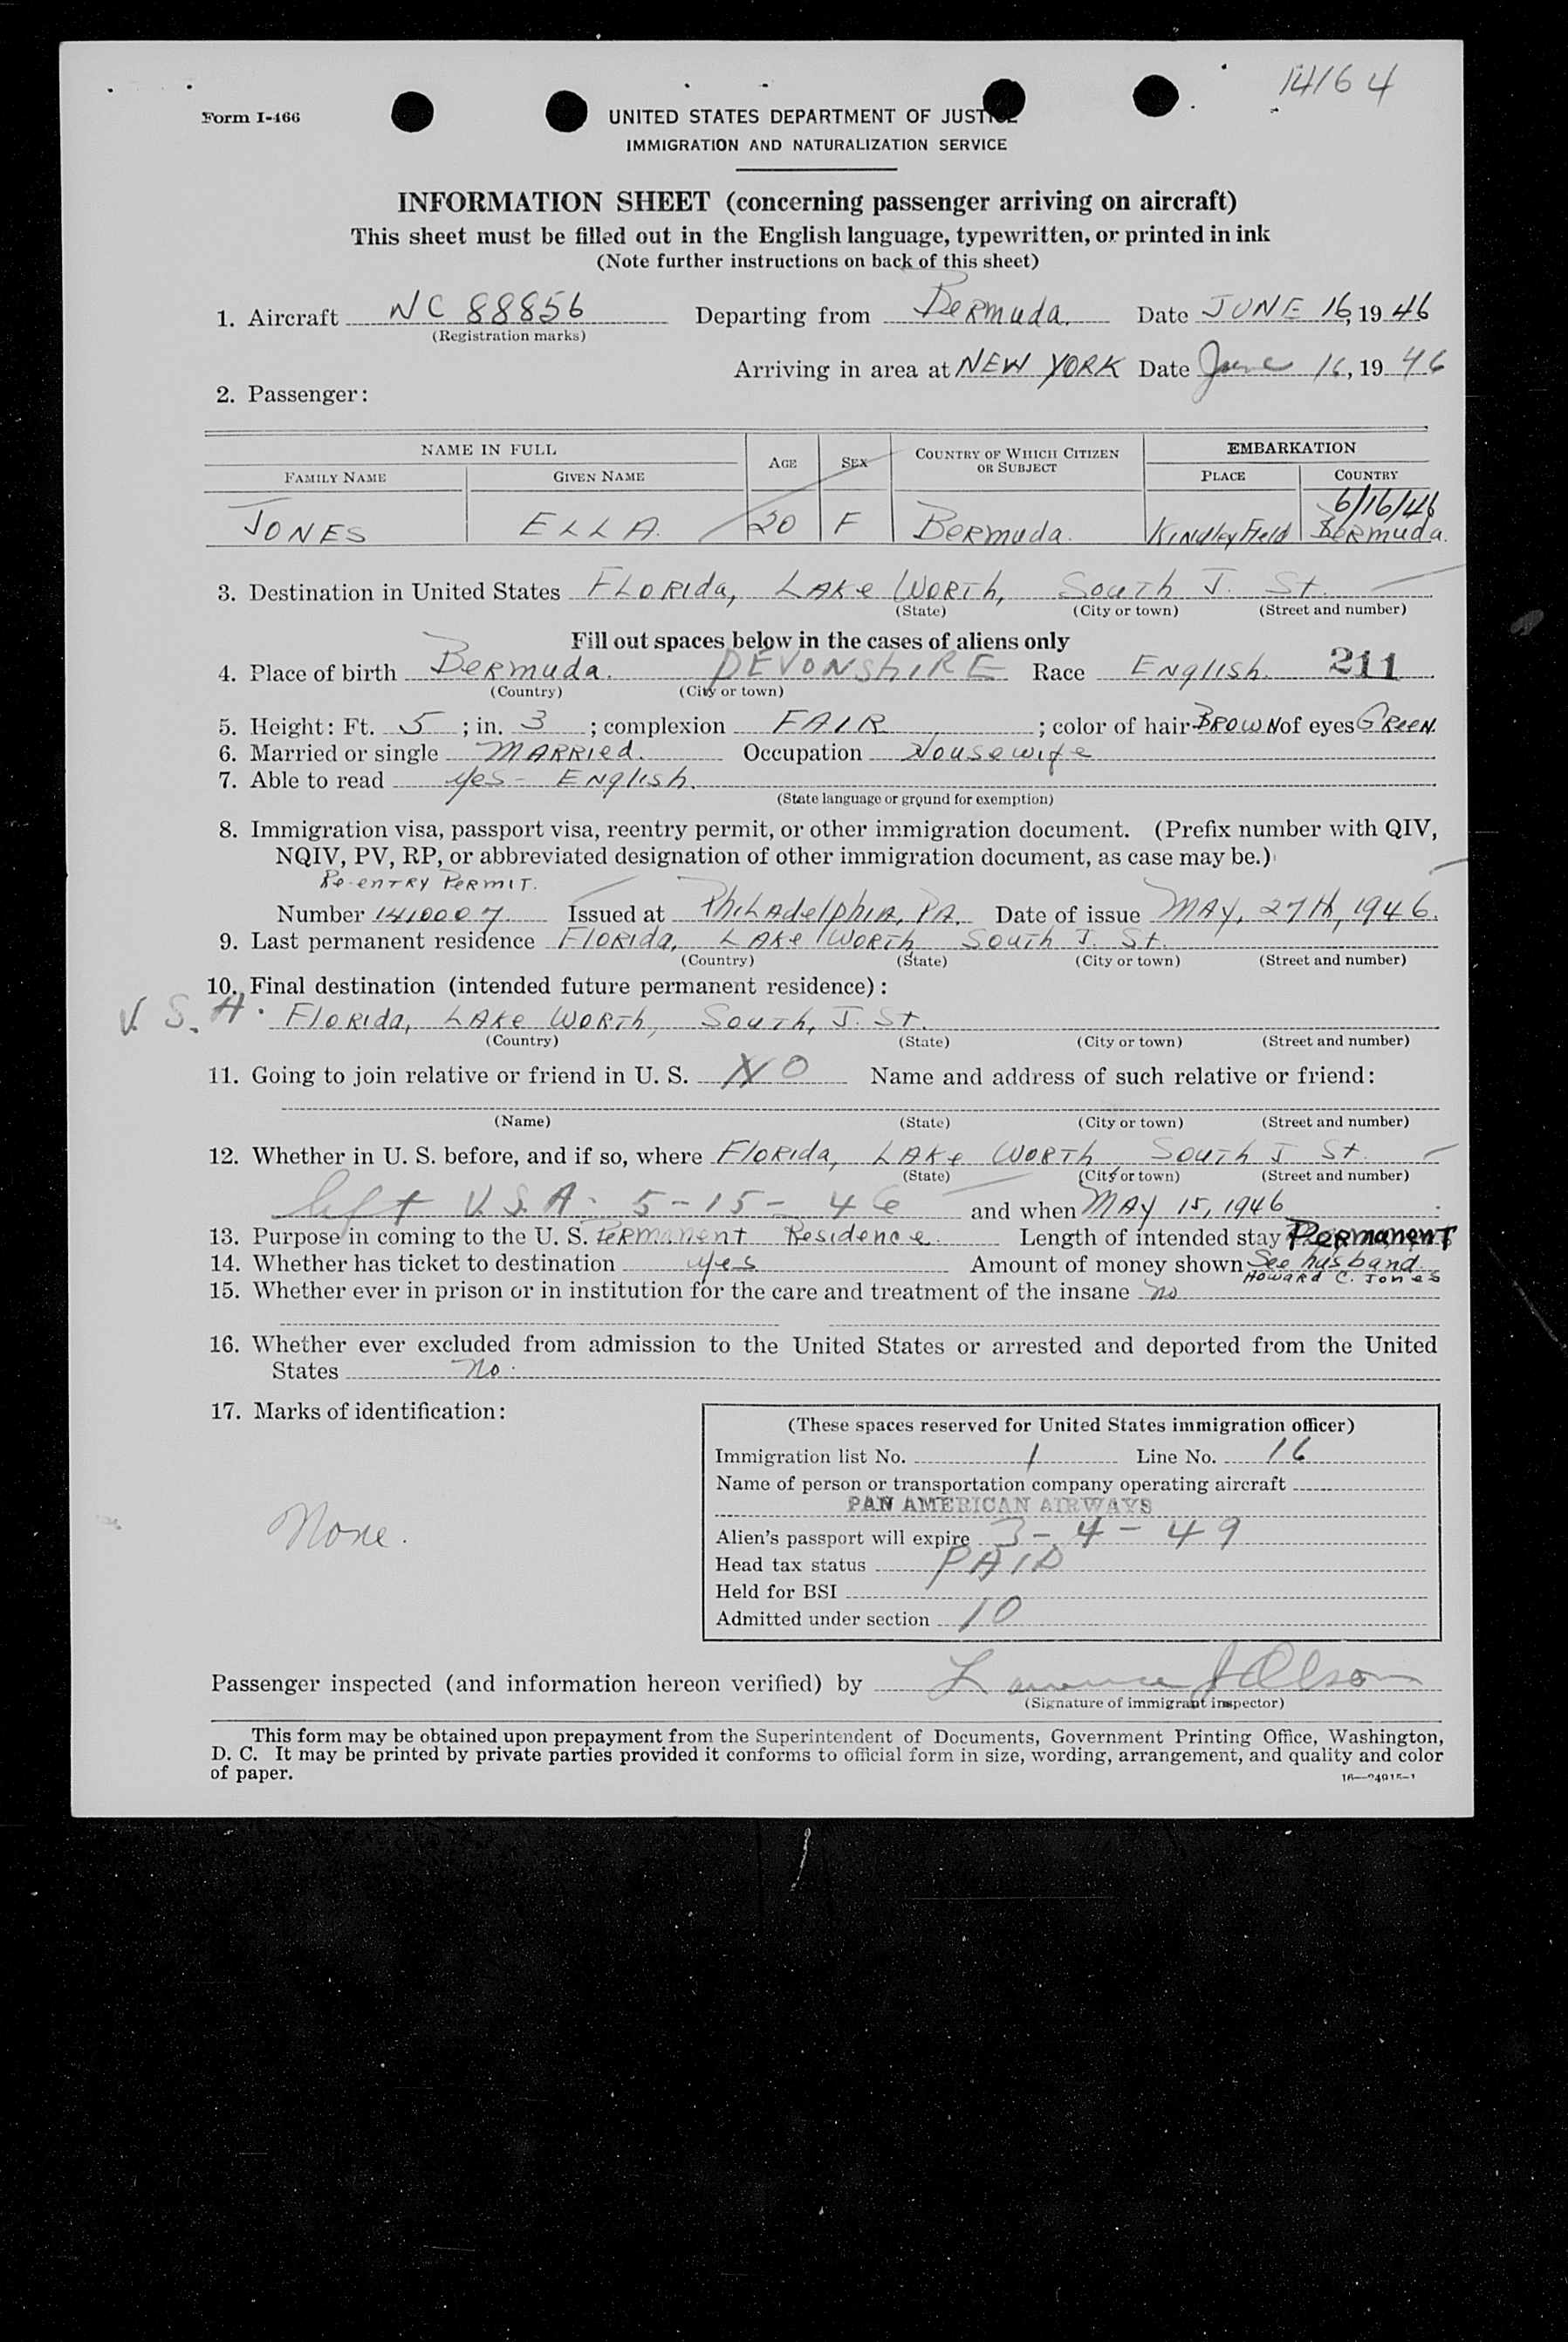 14164
Form I-466
UNITED STATES DEPARTMENT OF JUSTICE
IMMIGRATION AND NATURALIZATION SERVICE
INFORMATION SHEET (concerning passenger arriving on aircraft)
This sheet must be filled out in the English language, typewritten, or printed in ink
(Note further instructions on back of this sheet)
1. Aircraft NC 88856 Departing from Bermuda. Date JUNE 16, 1946
(Registration marks)
Arriving in area at NEW YORK Date June 16, 1946
2. Passenger:
NAME IN FULL AGE SEX COUNTRY OF WHICH CITIZEN OR SUBJECT EMBARKATION
FAMILY NAME GIVEN NAME PLACE COUNTRY
6/16/46
JONES ELLA. 20 F Bermuda. Kindley Field Bermuda.
3. Destination in United States FLORIda, LAKe WORTh, South J. St.
(State) (City or town) (Street and number)
Fill out spaces below in the cases of aliens only
4. Place of birth Bermuda. DEVONShIRE Race ENglish. 211
(Country) (City or town)
5. Height: Ft. 5 ; in. 3 ; complexion FAIR ; color of hair BROWN of eyes GReeN.
6. Married or single MARRIed. Occupation Housewife
7. Able to read yes - ENglish.
(State language or ground for exemption)
8. Immigration visa, passport visa, reentry permit, or other immigration document. (Prefix number with QIV,
NQIV, PV, RP, or abbreviated designation of other immigration document, as case may be.)
Re-entry Permit.
Number 1410007 Issued at PhiLAdelphia, PA. Date of issue MAy, 27th, 1946.
9. Last permanent residence FlORIda, LAKe WORTh South J. St.
(Country) (State) (City or town) (Street and number)
10. Final destination (intended future permanent residence):
U. S. A. FlORIda, LAKe WORTh, South, J. St.
(Country) (State) (City or town) (Street and number)
11. Going to join relative or friend in U. S. NO Name and address of such relative or friend:
(Name) (State) (City or town) (Street and number)
12. Whether in U. S. before, and if so, where FlORIda, LAKe WORTh South J St.
(State) (City or town) (Street and number)
left U.S.A. 5-15-46 and when MAy 15, 1946
13. Purpose in coming to the U. S. Permanent Residence. Length of intended stay Permanent
14. Whether has ticket to destination yes Amount of money shown See husband.
Howard C. Jones
15. Whether ever in prison or in institution for the care and treatment of the insane no
16. Whether ever excluded from admission to the United States or arrested and deported from the United
States No.
17. Marks of identification:
None.
(These spaces reserved for United States immigration officer)
Immigration list No. 1 Line No. 16
Name of person or transportation company operating aircraft
PAN AMERICAN AIRWAYS
Alien's passport will expire 3-4-49
Head tax status PAID
Held for BSI
Admitted under section 10
Passenger inspected (and information hereon verified) by Lawrence J Olson
(Signature of immigrant inspector)
This form may be obtained upon prepayment from the Superintendent of Documents, Government Printing Office, Washington,
D. C. It may be printed by private parties provided it conforms to official form in size, wording, arrangement, and quality and color
of paper.